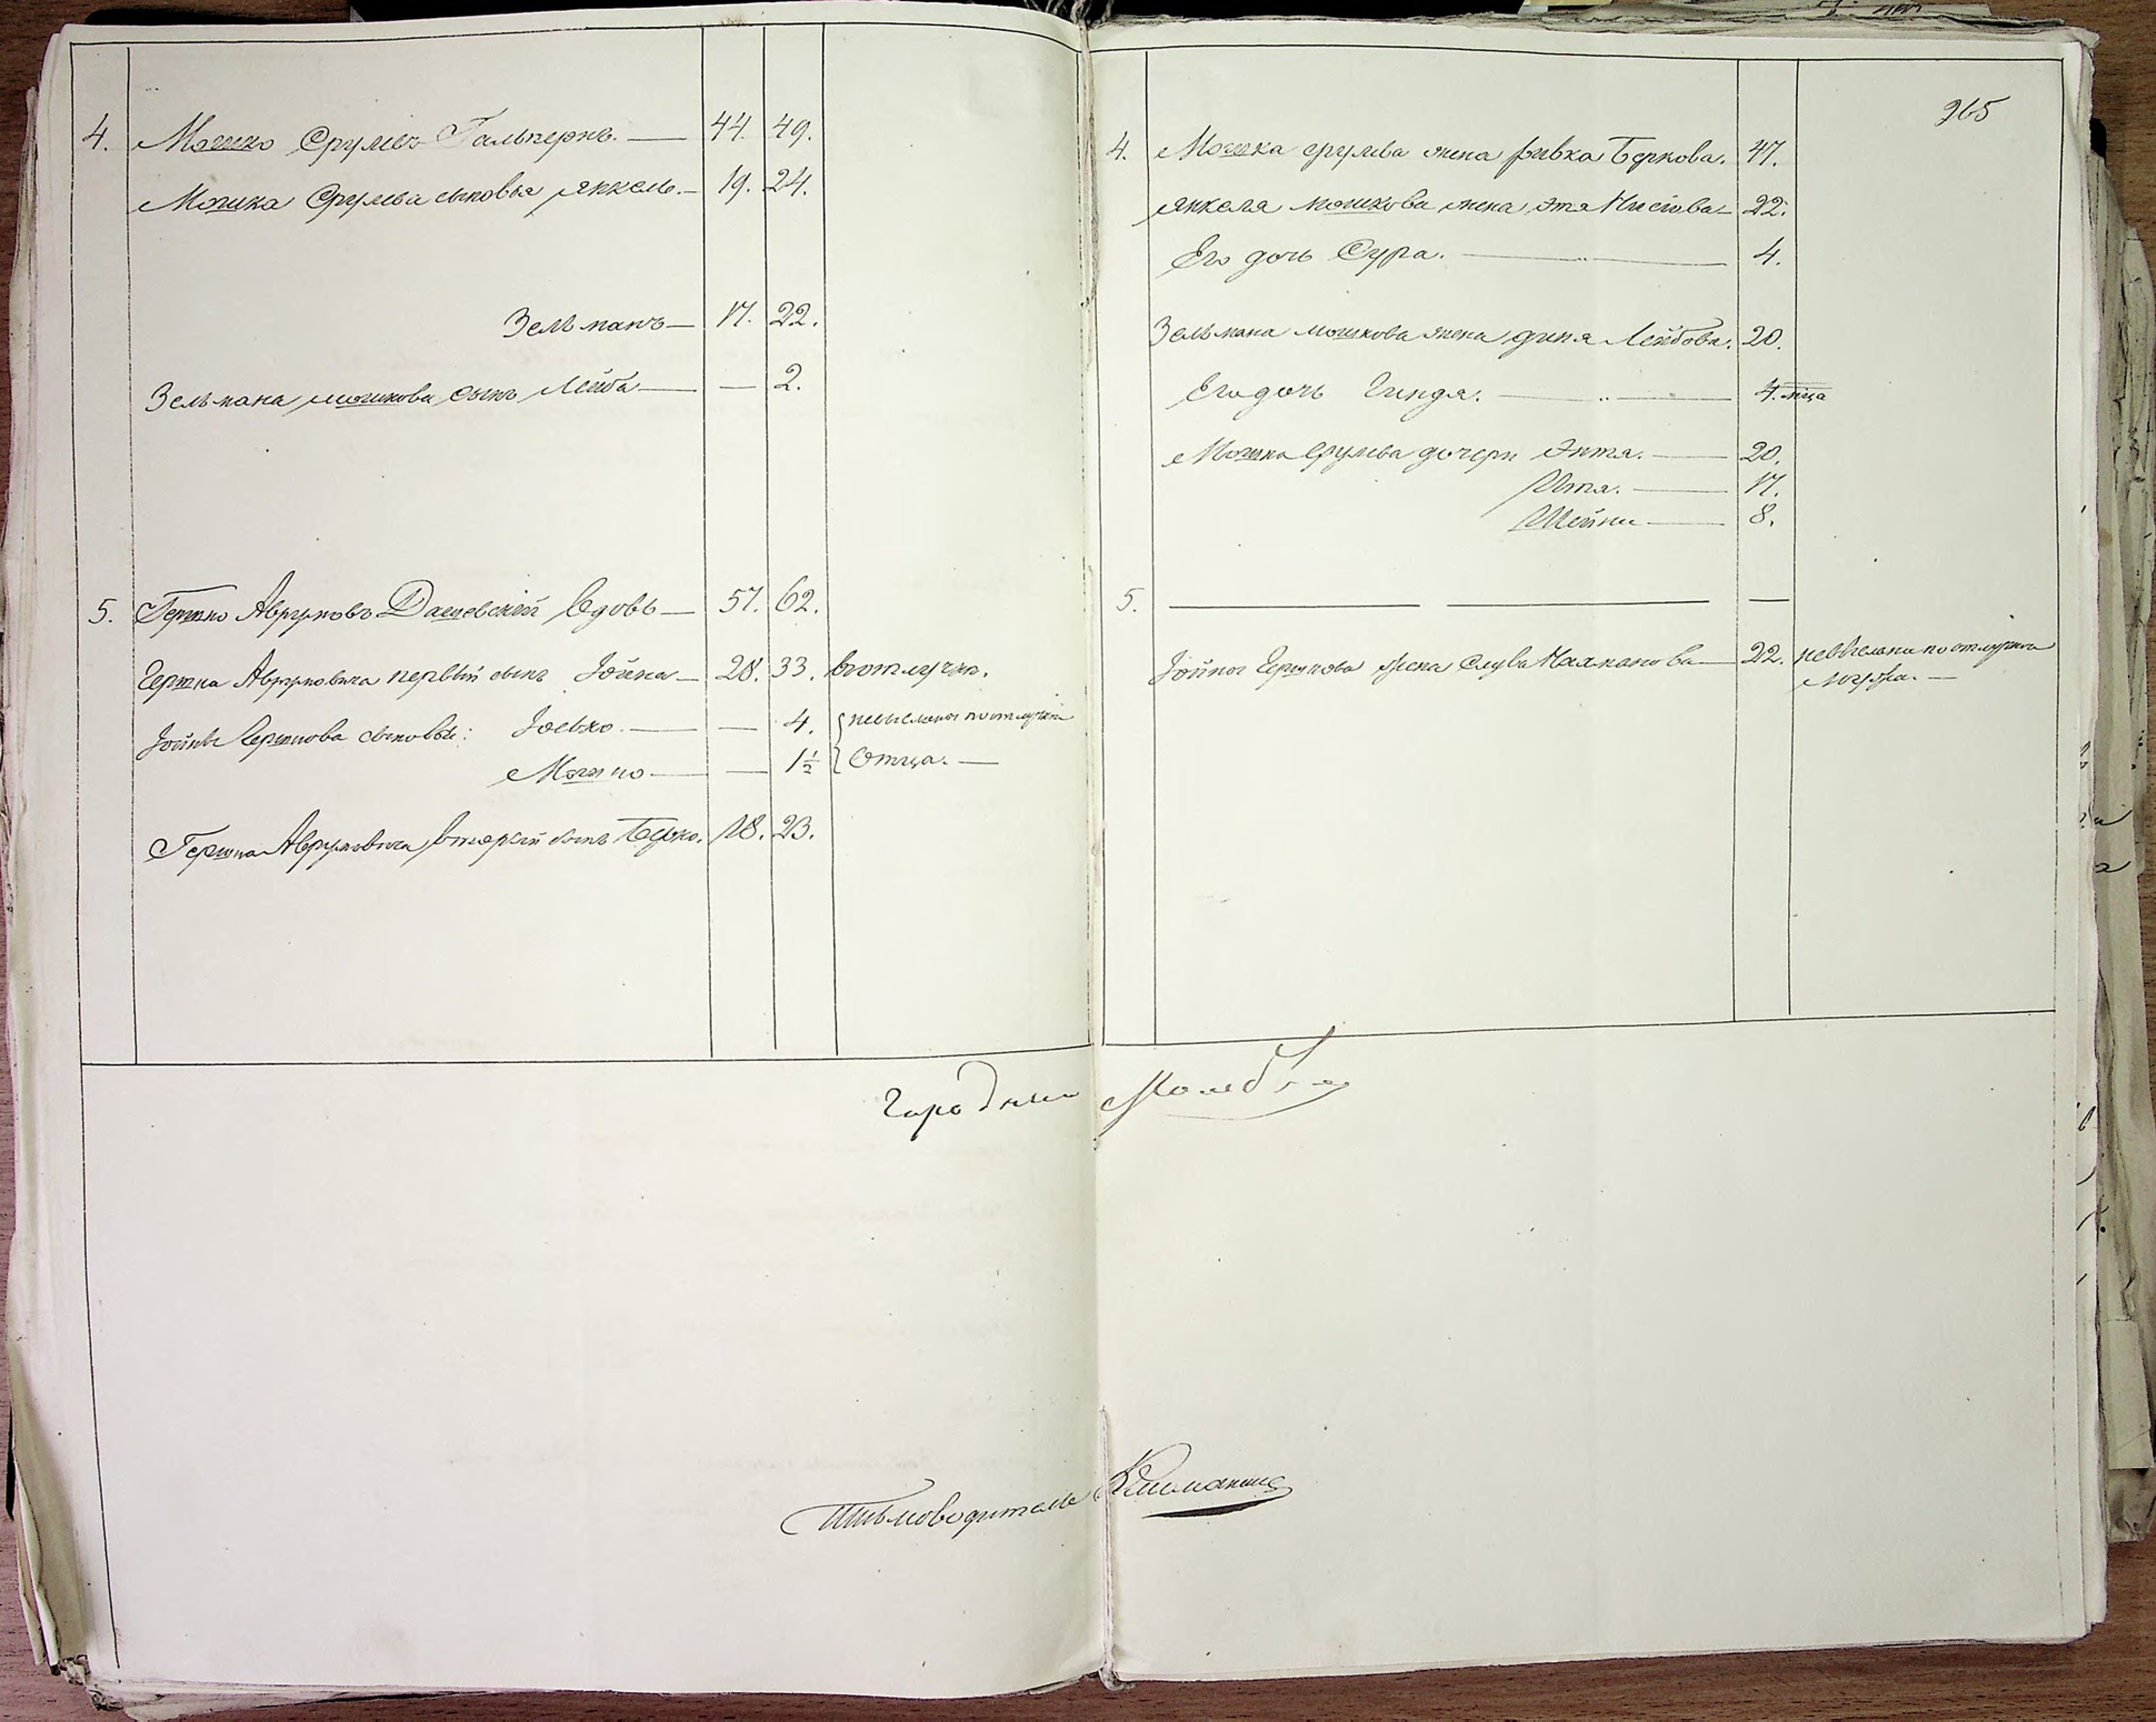 4. Мошко Срулевъ Гальпернъ. — 44. 49.
Мошка Срулева сыновья Янкель. — 19. 24.
Зельманъ — 17. 22.
Зельмана Мошкова сынъ Лейба — — 2.
5. Гершко Аврумовъ Дашевскій вдовъ — 57. 62.
Гершка Аврумовича первый сынъ Іойна — 28. 33. въ отлучке.
Іойны Гершкова сыновья: Іосько. — — 4. по отлучки
Мошко — — 1½ Отца. —
Гершка Аврумовича вторый сынъ Берко. 18. 23.
265
4. Мошка Срулева жена Ривка Беркова. 47.
Янкеля Мошкова жена Этя — 22.
Его дочь Сура. — 4.
Зельмана Мошкова жена Диня Лейбова. 20.
Его дочь Гинда. — 4. мца
Мошка Срулева дочери Энтя. — 20.
Итя. — 17.
Шейни — 8.
5. — — —
Іойны Гершкова жена Слува Нахманова — 22. по отлучки
мужа. —
Городничій
Письмоводитель